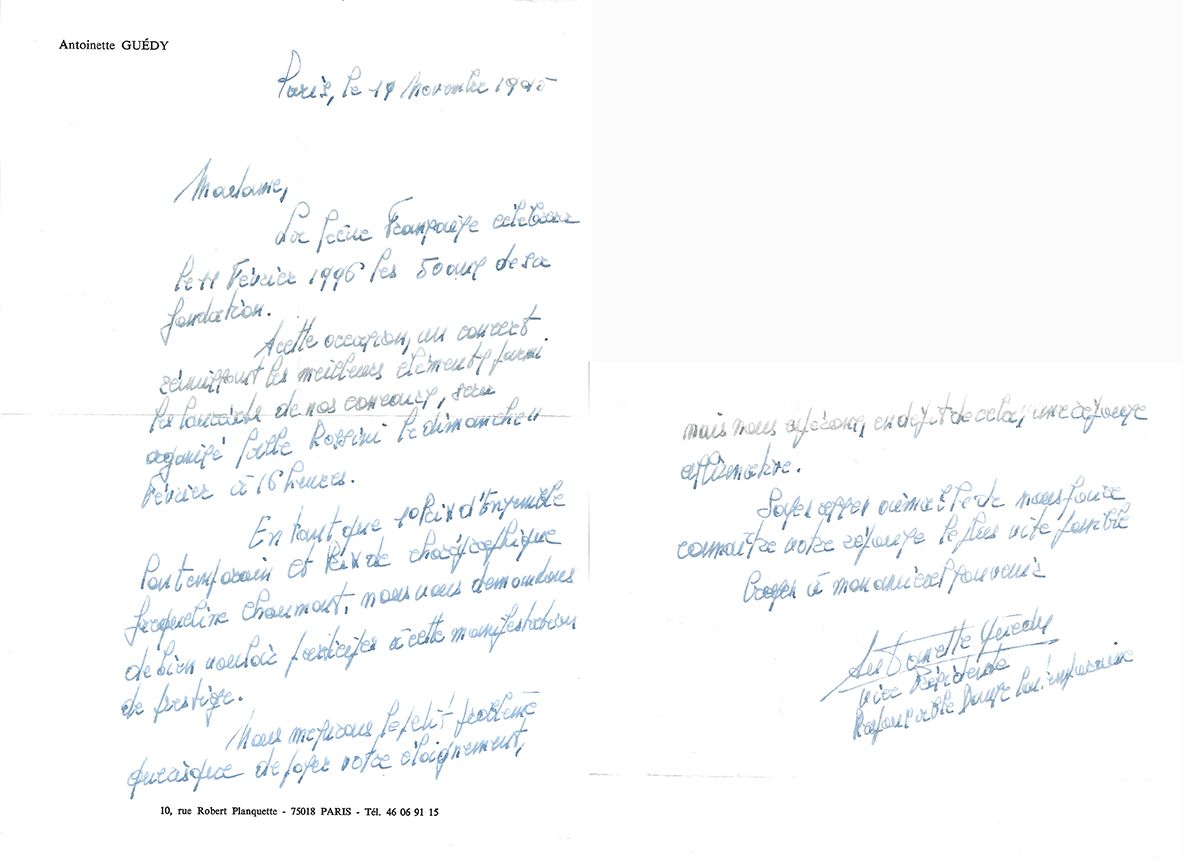 Antoinette GUÉDY
Paris, le 19 Novembre 1995
Madame,
La Scène Française célèbrera
le 11 Février 1996 les 50 ans de sa
fondation.
A cette occasion, un concert
réunissant les meilleurs éléments parmi
les lauréats de nos concours, sera
organisé salle Rossini le dimanche 11
Février à 16 heures.
En tant que 1er Prix d'Ensemble
Contemporain et Prix de chorégraphique
Jacqueline Chaumont, nous vous demandons
de bien vouloir participer à cette manifestation
de prestige.
Nous mesurons le petit problème
que risque de poser votre éloignement,
10, rue Robert Planquette - 75018 PARIS - Tél. 46 06 91 15
mais nous espérons, en dépit de cela, une réponse
affirmative.
Soyez assez aimable de nous faire
connaître votre réponse le plus vite possible
Croyez à mon amical souvenir
Antoinette Guédy
Vice Présidente
Responsable Danse Contemporaine